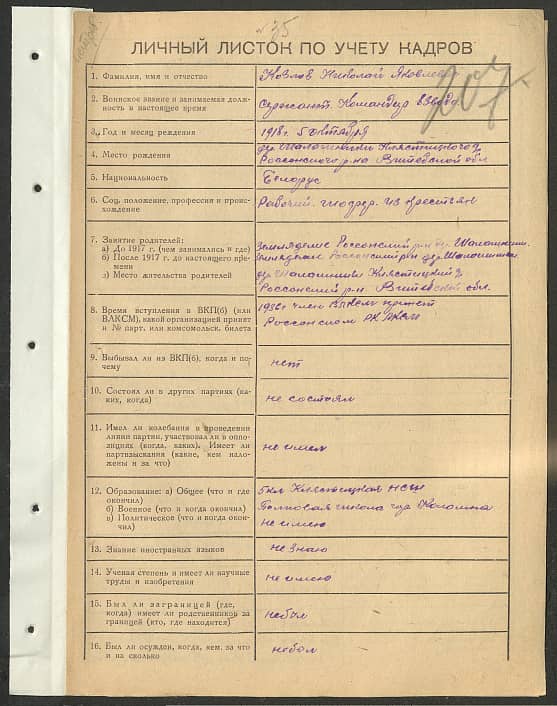 № 35
207
ЛИЧНЫЙ ЛИСТОК ПО УЧЕТУ КАДРОВ
1. Фамилия, имя и отчество
Козлов Николай Яковлевич
2. Воинское звание и занимаемая долж-
ность в настоящее время
Сержант. Командир взвода
3. Год и месяц рождения
1918 г. 5 октября
4. Место рождения
др. Шалашники Клястицкого
Россонского р-на Витебской обл
5. Национальность
Белорус
6. Соц. положение, профессия и проис-
хождение
Рабочий. из крестьян
7. Занятие родителей:
а) До 1917 г. (чем занимались и где)
б) После 1917 г. до настоящего вре-
мени
з) Место жительства родителей
Земляделие Россонский р-н др. Шалашники
Россонский р-н дер. Шалашники
др. Шалашники Клястицкий
Россонский р-н. Витебской обл.
8. Время вступления в ВКП(б) (или
ВЛКСМ), какой организацией принят
и № парт. или комсомольск. билета
1936 г член ВЛКСМ принят
Россонском РК ЛКСМ
9. Выбывал ли из ВКП(б), когда и по-
чему
нет
10. Состоял ли в других партиях (ка-
ких, когда)
не состоял
11. Имел ли колебания в проведении
линии партии, участвовал ли в оппо-
зициях (когда, каких). Имеет ли
партвзыскания (какие, кем нало-
жены и за что)
не имел
12. Образование: а) Общее (что и где
окончил)
б) Военное (что и когда окончил)
в) Политическое (что и когда окон-
чил)
Клястицкая НСШ
Полковая школа Коломна
не имею
13. Знание иностранных языков
не знаю
14. Ученая степень и имеет ли научные
труды и изобретения
не имею
15. Был ли заграницей (где,
когда) имеет ли родственников за
границей (кто, где находится)
небыл
16. Был ли осужден, когда, кем, за что
и на сколько
небыл